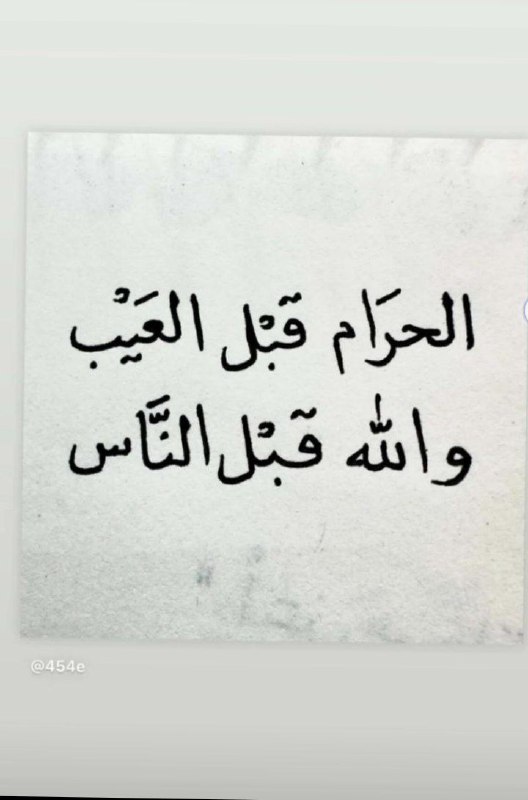 الحرَام قَبْل العَيْب
والله قَبْل النَّاس
@454e